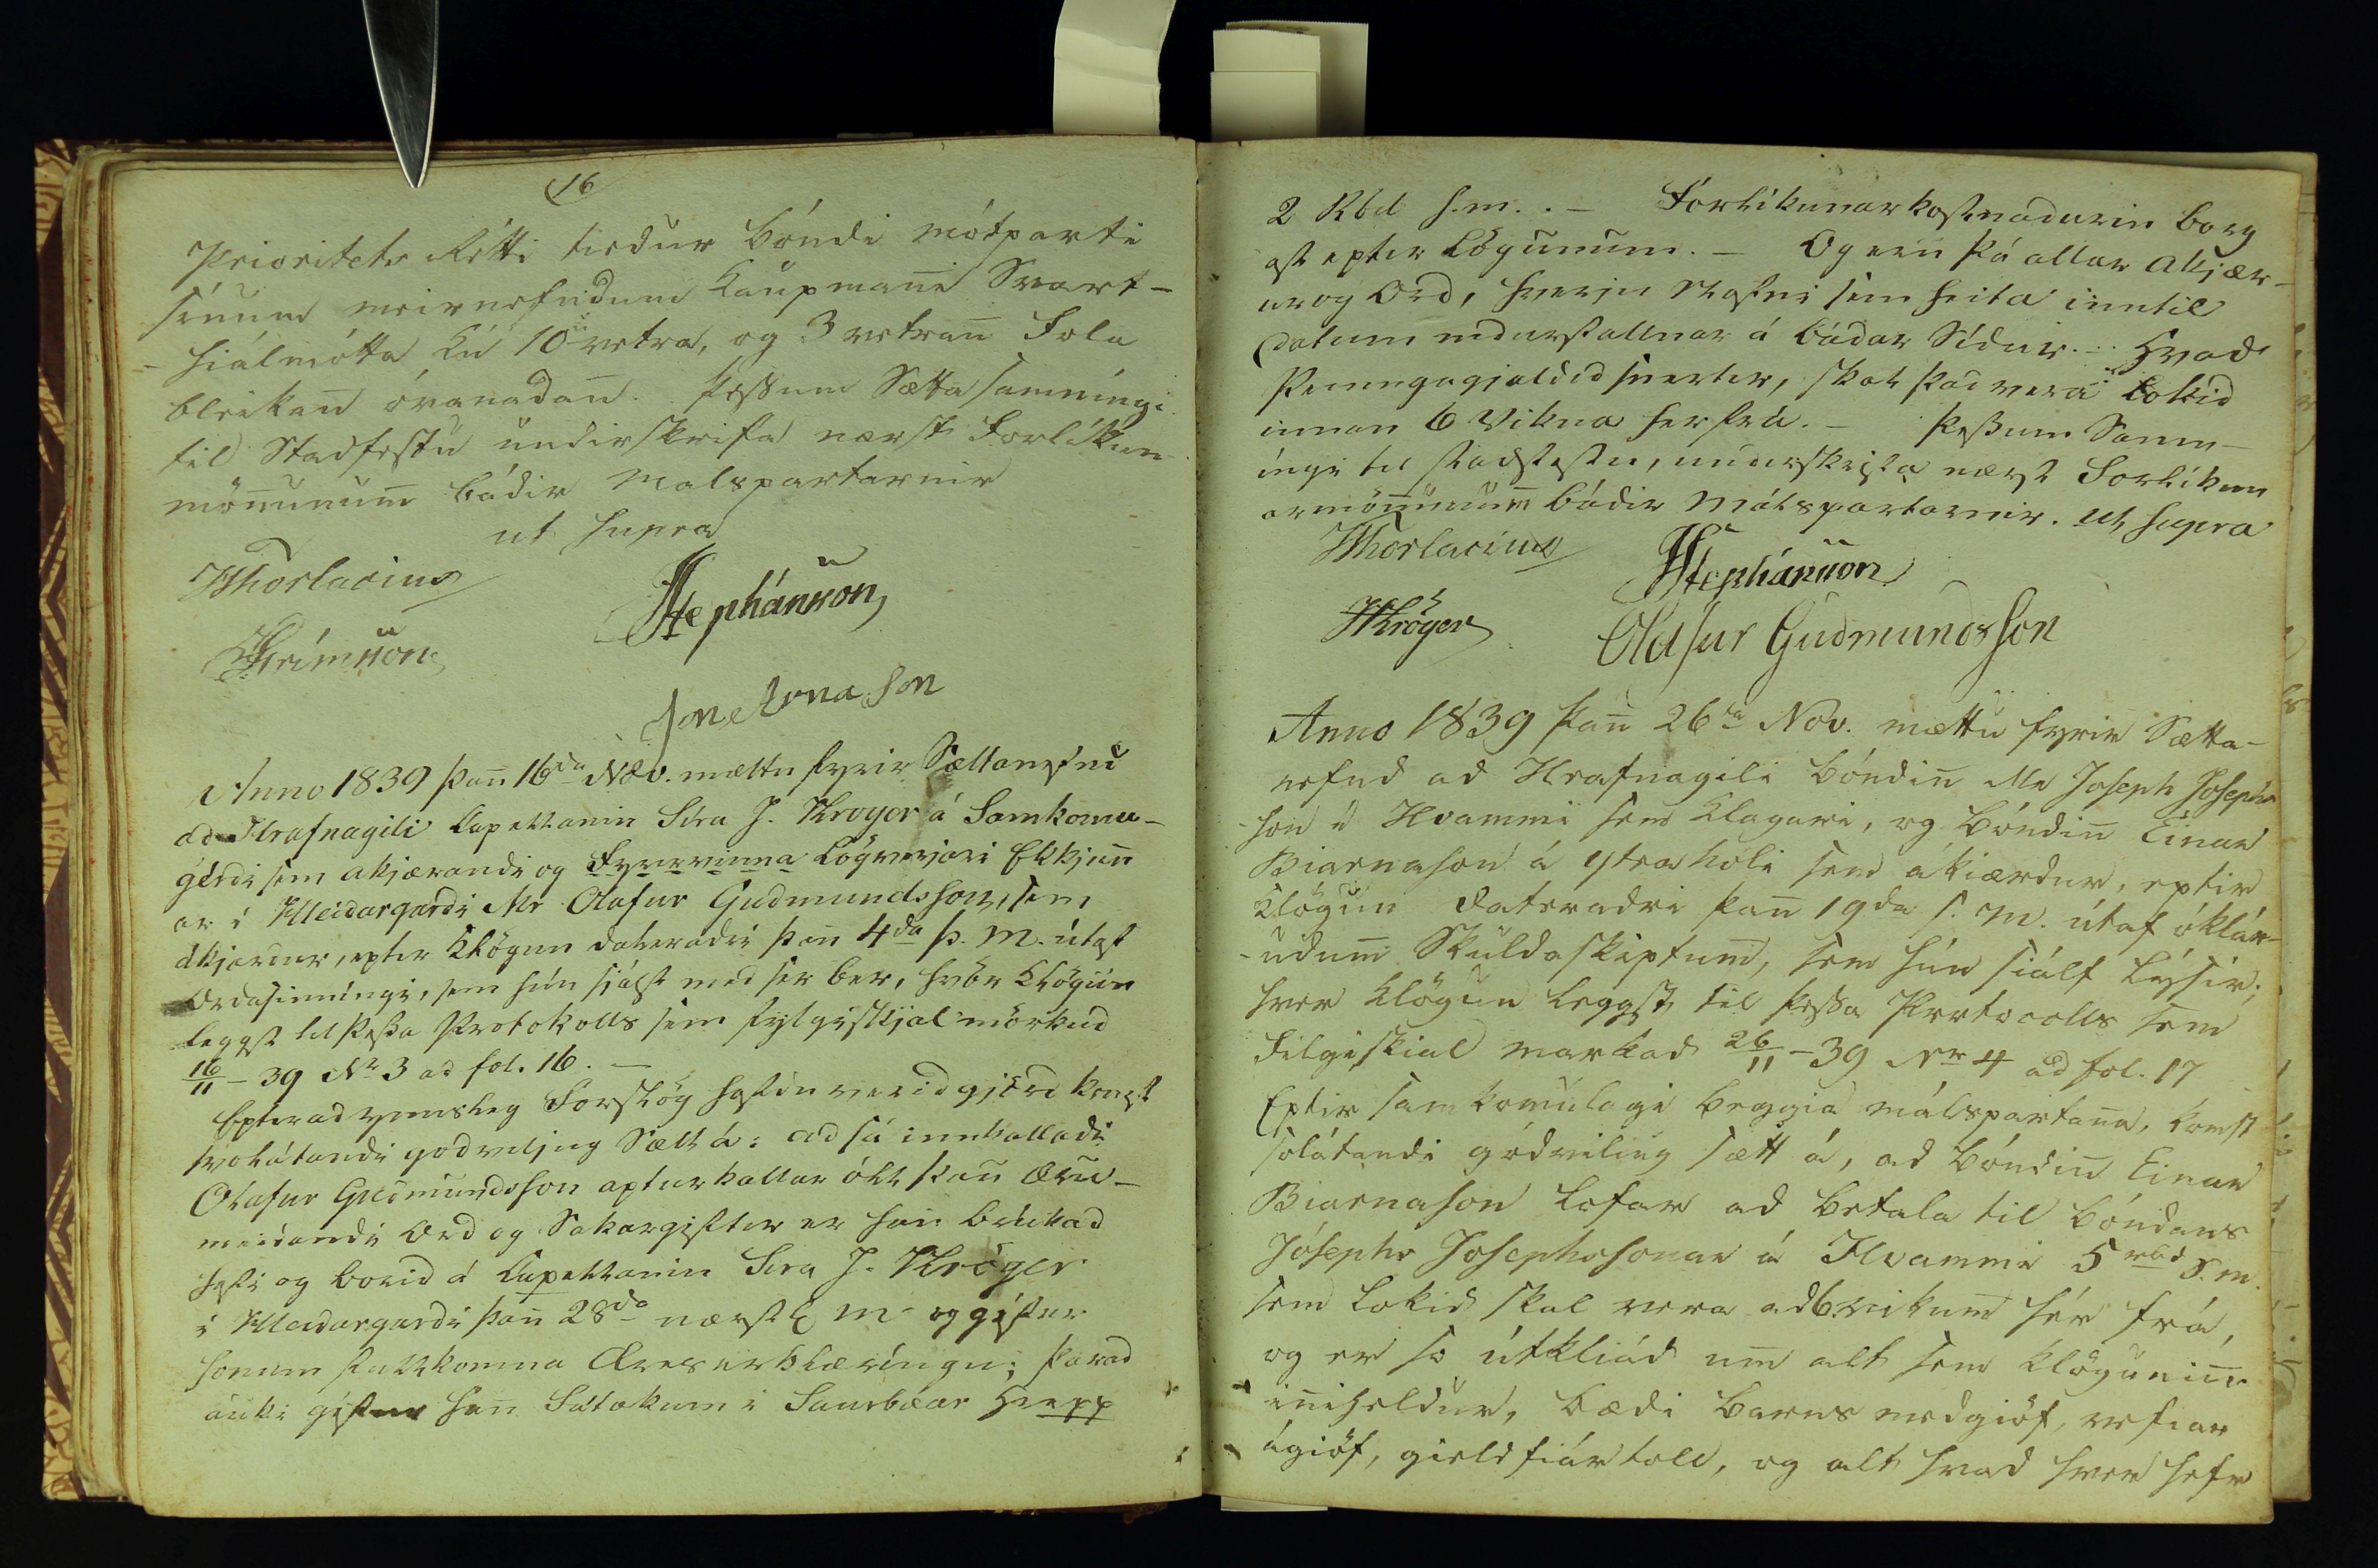 16
Prioritets Rétti tiedur bóndi mótparti
sínum meirnefndum Kaupmañi Svart-
-hiálmótta Kú 10 vetra, og 3 vetrañ Fola
bleikañ óvanadañ. Þessum Sættasamníngi
til Stadfestu undirskrifa næst Forlíkun
möñunum bádir Malspartarnir
ut supra
HThorlacius
Stephánsson
Grímsson
Jon Arnason
Anno 1839 þañ 16da Nov. mættu fyrir Sættanefnd
ad Hrafnagili Capellanin Síra J. Kroyer á Samkomu-
gérdi sem akjærandi og Fyrrvinna Lögverjari Ekkjuñ
ar í Meidargardi Mr Olafur Gudmundsson, sem
ákjærdur, epter Klögun dateradri þañ 4da þ. M. útaf
Ordasinníngi, sem hún sjálf med ser ber, hvör Klögun
leggst til þessa Protokolls sem fylgiskjal mörkud
16/11 - 39 Nr 3 ad fol. 16. —
Epter ad ymisleg Forslög höfdu verid gjörd komst
svolátandi godviljug Sætt á: ad sá innkalladi
Olafur Gudmundsson apturkallar öll þau Æru-
meidandi Ord og Sakargifter er hañ brúkad
hefi og borid á Capellanin Síra J. Kröyer
í Meidargardi þañ 28da næstl. M. og géfur
honum fullkomna Æreserklæríngu; þarad
auki géfur hañ Fátækum í Saurbæar Hrepp
2 Rbd s.m. . — Forlíkunarkostnadurin borg
ast epter Lögunum. — Og eru þá allar Akjær-
ur og Ord, hverju Nafni sem heita inntil
Datum nidurfallnar á bádar Sídur. — Hvad
Peningagjaldid snerter, skal það vera lokid
innan 6 Vikna herfrá. — Þessum Samn-
íngi til stadfestu, underskrifa næst Forlíkun
armöñunum bádir Málspartarnir. Ut supra
HThorlacius
Stephánsson
JKröyer
Olafur Gudmundsson
Anno 1839 þañ 26ta Nov. mættu fyrir Sætta-
nefnd ad Hrafnagili bóndiñ Mr Joseph Josephs
son á Hvammi sem Klagari, og bóndiñ Einar
Biarnason á Ytrahóli sem ákiærdur, eptir
Klögun dateradri þañ 19da s. M. útaf óklár-
-udum Skuldaskiptum, sem hún siálf lýsir;
hver Klögun leggst til þessa Prótocolls sem
Filgiskial markad 26/11 - 39 Nr 4 ad fol. 17
Eptir samkomulagi beggia málspartaña, komst
solátandi gódviliug sætt á, ad bóndiñ Einar
Biarnason lofar ad betala til bóndans
Jósephs Josephssonar á Hvammi 5 rbd S.m.
sem lokid skal vera ad 6 vikum hér frá,
og er so útkliád um alt sem Klöguniñ
iñiheldur, bædi Barns medgiöf, refiar
ágiöf, gield fiártoll, og alt hvad hver hefr